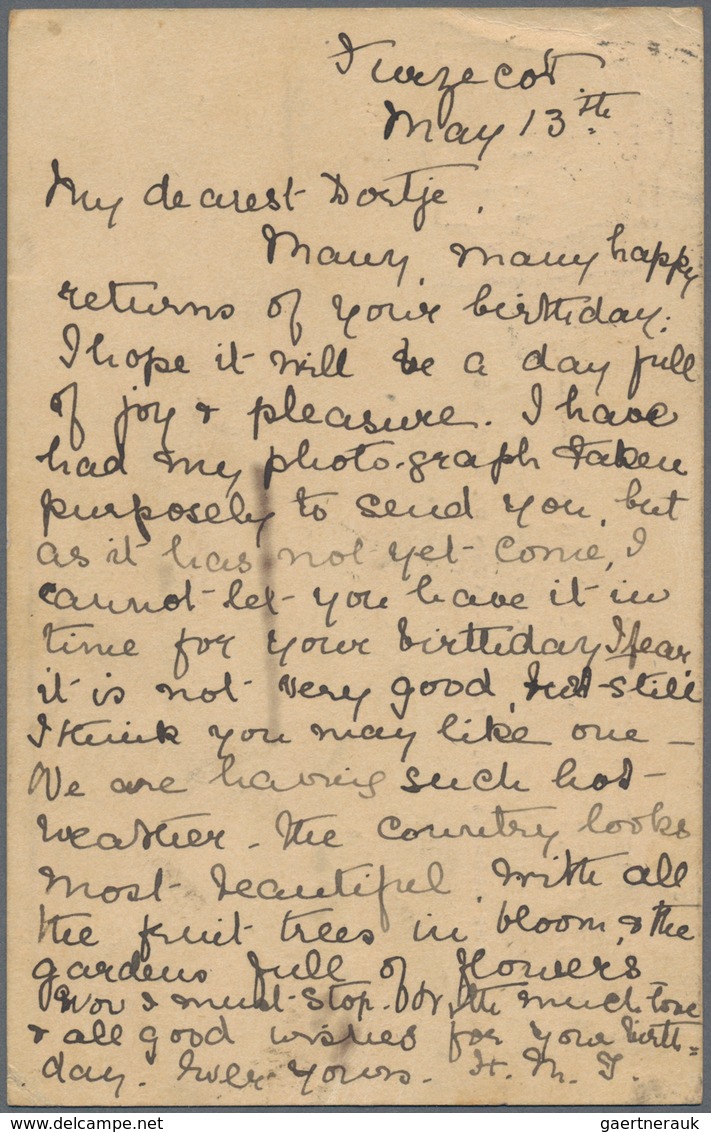 Furzecot
May 13th
My dearest Dortje,
Many, many happy
returns of your birthday.
I hope it will be a day full
of joy & pleasure. I have
had my photo-graph taken
purposely to send you, but
as it has not yet come, I
cannot let you have it in
time for your birthday I fear
it is not very good, but still
I think you may like one –
We are having such hot
weather – the country looks
most beautiful, with all
the fruit trees in bloom, & the
gardens full of flowers
Now I must stop. With much love
& all good wishes for your birth=
day. Ever yours. H. M. F.
delcampe.net
gaertnerauk